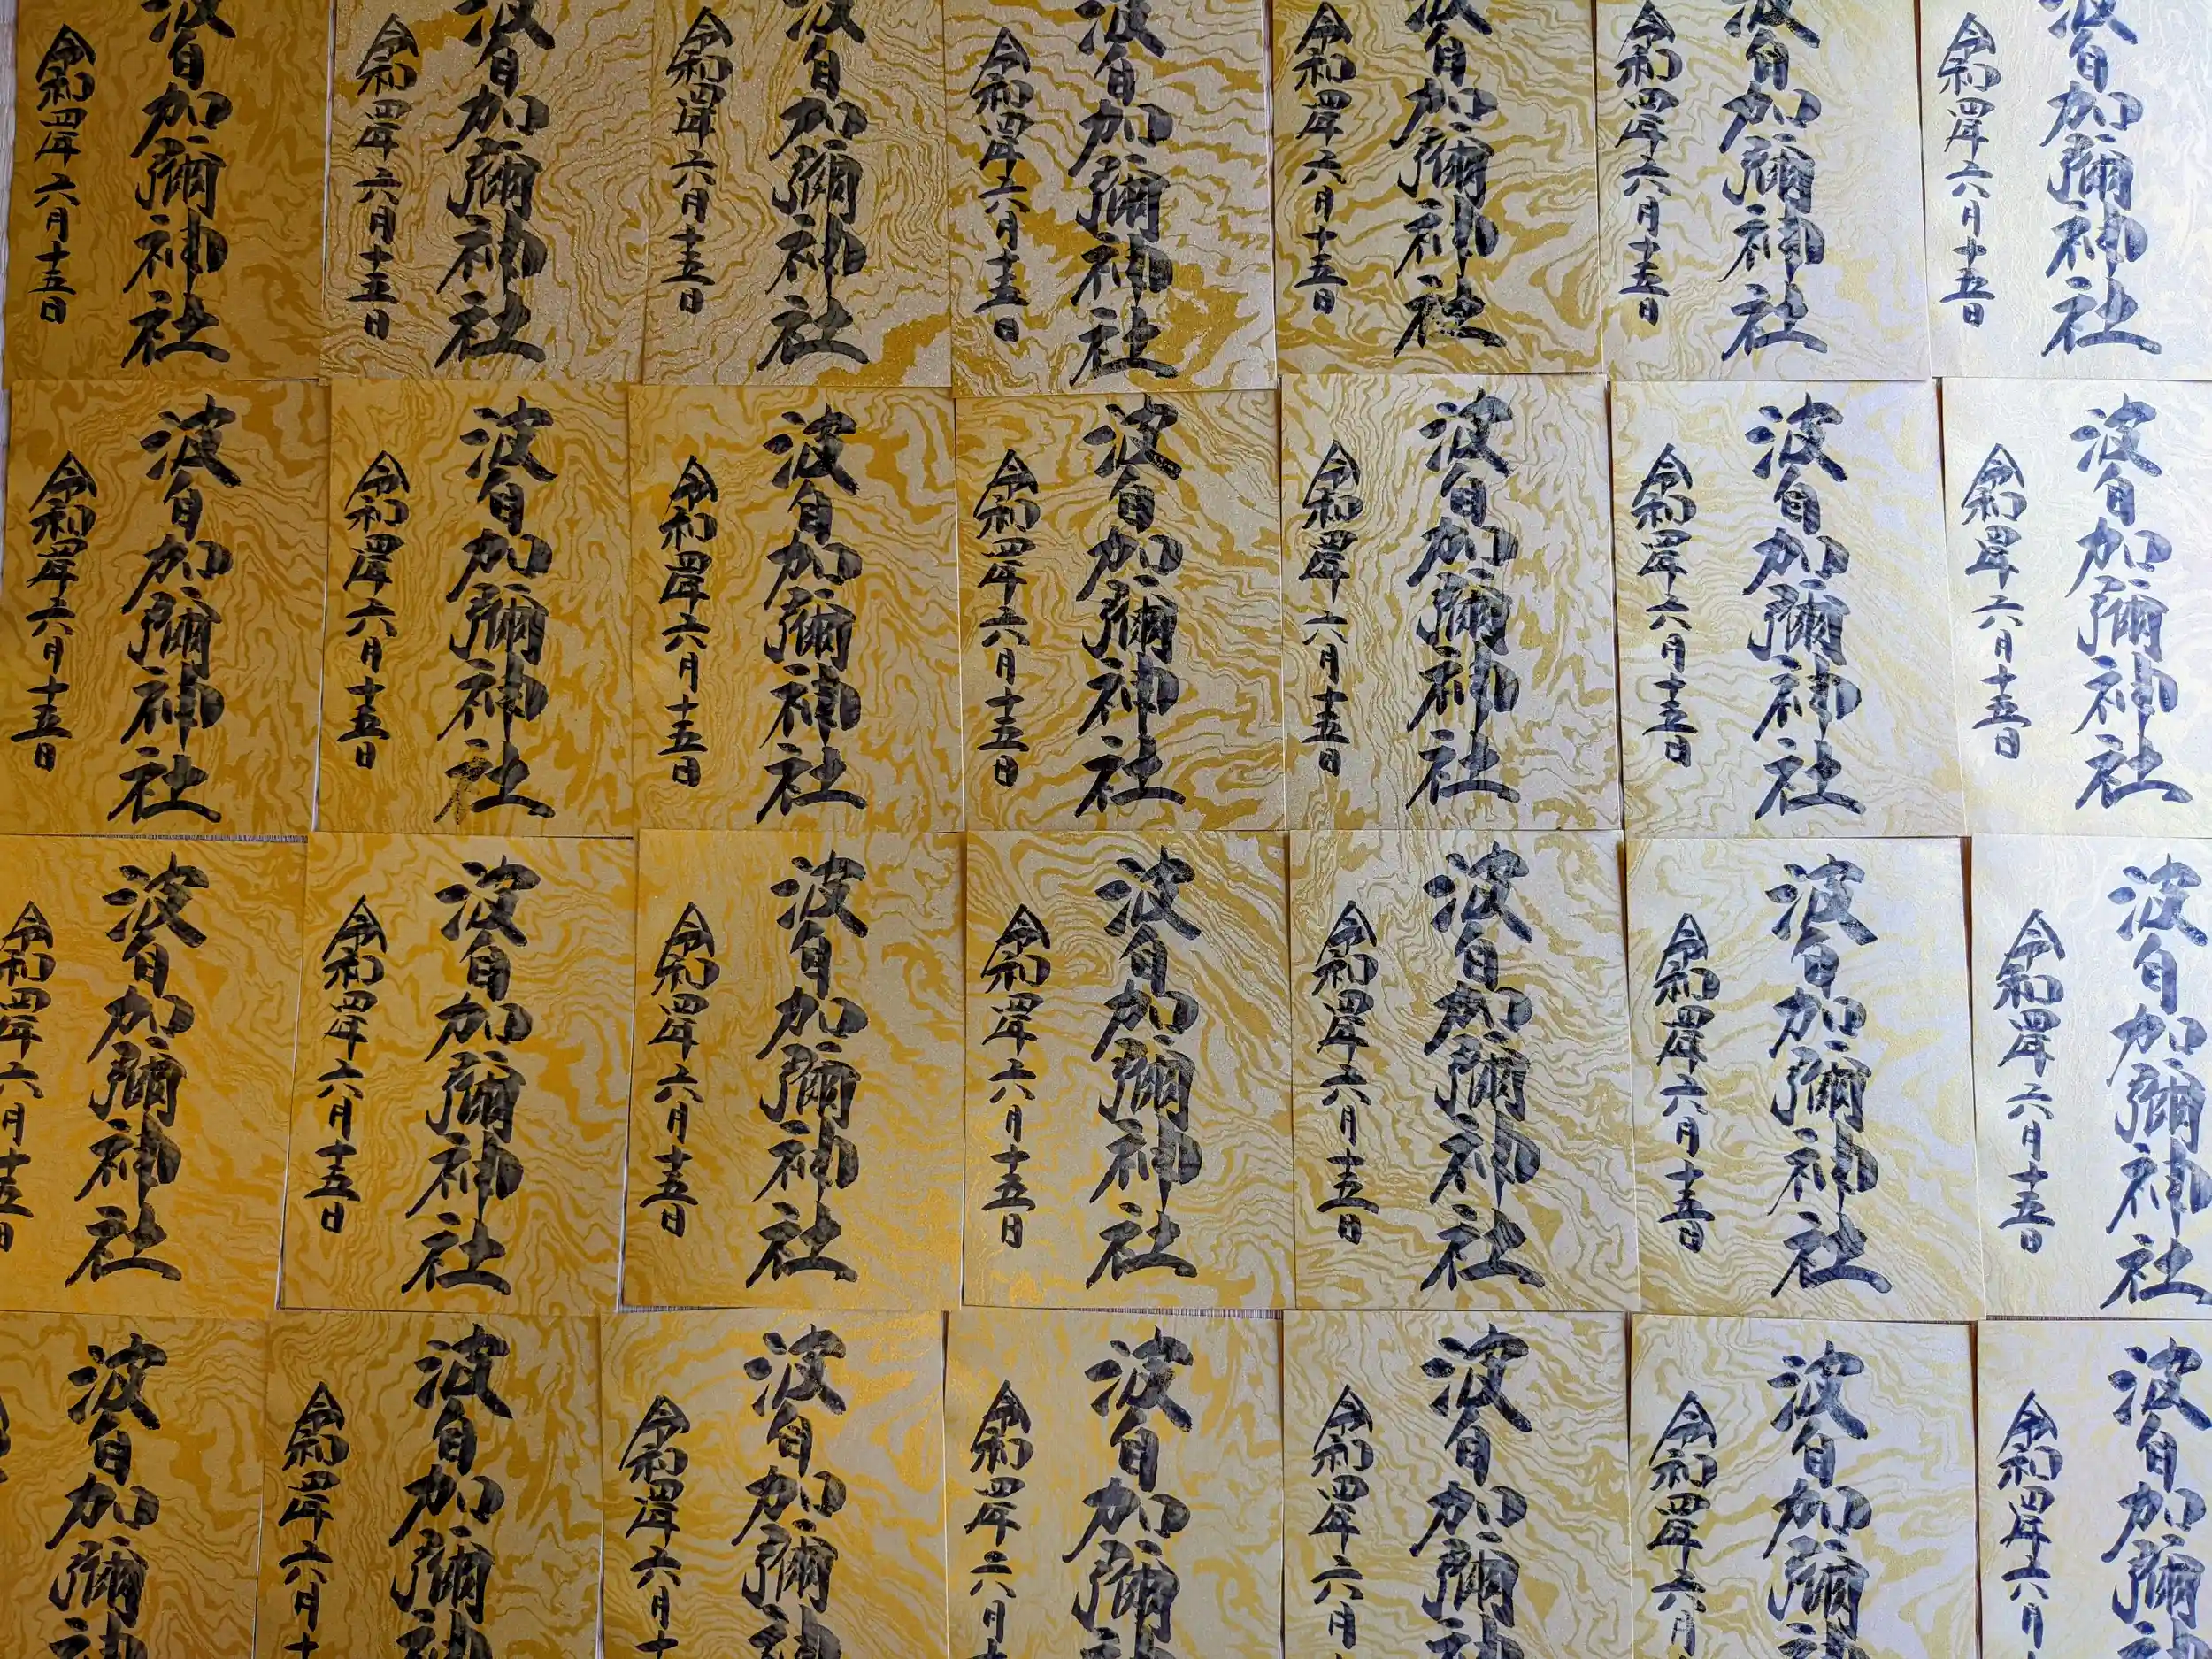 波自加彌神社
令和四年六月十五日
波自加彌神社
令和四年六月十五日
波自加彌神社
令和四年六月十五日
波自加彌神社
令和四年六月十五日
波自加彌神社
令和四年六月十五日
波自加彌神社
令和四年六月十五日
波自加彌神社
令和四年六月十五日
波自加彌神社
令和四年六月十五日
波自加彌神社
令和四年六月十五日
波自加彌神社
令和四年六月十五日
波自加彌神社
令和四年六月十五日
波自加彌神社
令和四年六月十五日
波自加彌神社
令和四年六月十五日
波自加彌神社
令和四年六月十五日
波自加彌神社
令和四年六月十五日
波自加彌神社
令和四年六月十五日
波自加彌神社
令和四年六月十五日
波自加彌神社
令和四年六月十五日
波自加彌神社
令和四年六月十五日
波自加彌神社
令和四年六月十五日
波自加彌神社
令和四年六月十五日
波自加彌神
令和四年六月
波自加彌神
令和四年六月
波自加彌神
令和四年六月
波自加彌神
令和四年六月十
波自加彌神
令和四年六月十
波自加彌神
令和四年六月十
波自加彌神